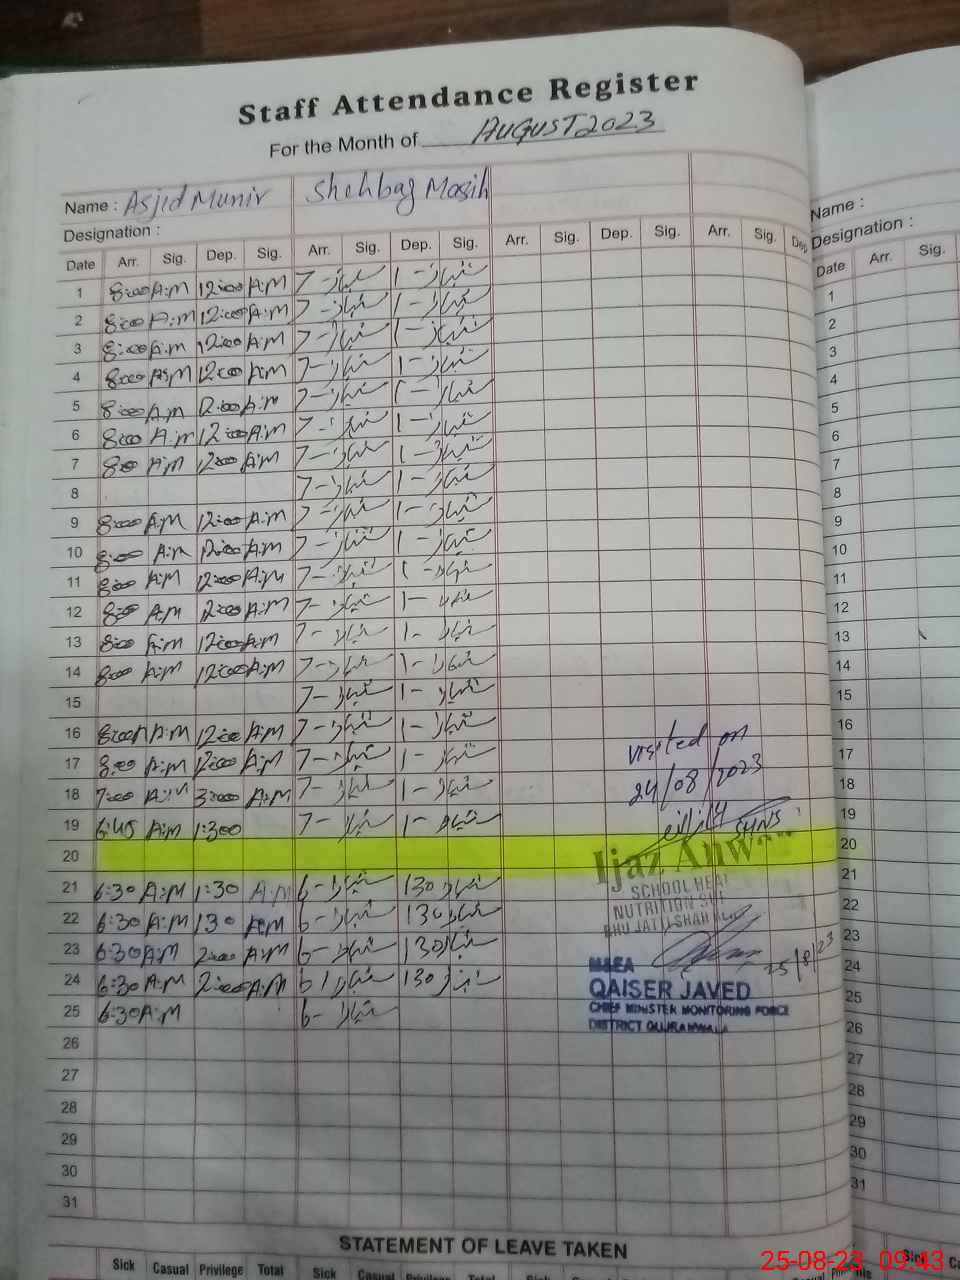 Staff Attendance Register
For the Month of AUGUST 2023
Name : Asjid Munir Shehbaz Masih
Designation :
Date Arr. Sig. Dep. Sig. Arr. Sig. Dep. Sig. Arr. Sig. Dep. Sig. Arr. Sig. Dep
1 8:00 A:M 12:00 A:M 7- شہباز 1- شہباز
2 8:00 A:M 12:00 A:M 7- شہباز 1- شہباز
3 8:00 A:M 12:00 A:M 7- شہباز 1- شہباز
4 8:00 A:M 12:00 A:M 7- شہباز 1- شہباز
5 8:00 A:M 12:00 A:M 7- شہباز 1- شہباز
6 8:00 A:M 12:00 A:M 7- شہباز 1- شہباز
7 8:00 A:M 12:00 A:M 7- شہباز 1- شہباز
8 7- شہباز 1- شہباز
9 8:00 A:M 12:00 A:M 7- شہباز 1- شہباز
10 8:00 A:M 12:00 A:M 7- شہباز 1- شہباز
11 8:00 A:M 12:00 A:M 7- شہباز 1- شہباز
12 8:00 A:M 12:00 A:M 7- شہباز 1- شہباز
13 8:00 A:M 12:00 A:M 7- شہباز 1- شہباز
14 8:00 A:M 12:00 A:M 7- شہباز 1- شہباز
15 7- شہباز 1- شہباز
16 8:00 A:M 12:00 A:M 7- شہباز 1- شہباز
17 8:00 A:M 12:00 A:M 7- شہباز 1- شہباز
18 7:00 A:M 3:00 A:M 7- شہباز 1- شہباز
19 6:45 A:M 1:300 7- شہباز 1- شہباز
20
21 6:30 A:M 1:30 A:M 6- شہباز 130 شہباز
22 6:30 A:M 130 A:M 6- شہباز 130 شہباز
23 6:30 A:M 2:00 A:M 6- شہباز 130 شہباز
24 6:30 A:M 2:00 A:M 6 شہباز 130 شہباز
25 6:30 A:M 6- شہباز
26
27
28
29
30
31
visited on
24/08/2023
SHNS
Ijaz Anw
SCHOOL HEAL
NUTRITION SU
25/8/23
M&EA
QAISER JAVED
CHIEF MINISTER MONITORING FORCE
DISTRICT GUJRANWALA
STATEMENT OF LEAVE TAKEN
Sick Casual Privilege Total Sick Casual Privilege Total Sick Casual
Name :
Designation :
Date Arr. Sig.
1
2
3
4
5
6
7
8
9
10
11
12
13
14
15
16
17
18
19
20
21
22
23
24
25
26
27
28
29
30
31
Sick
25-08-23 09:43